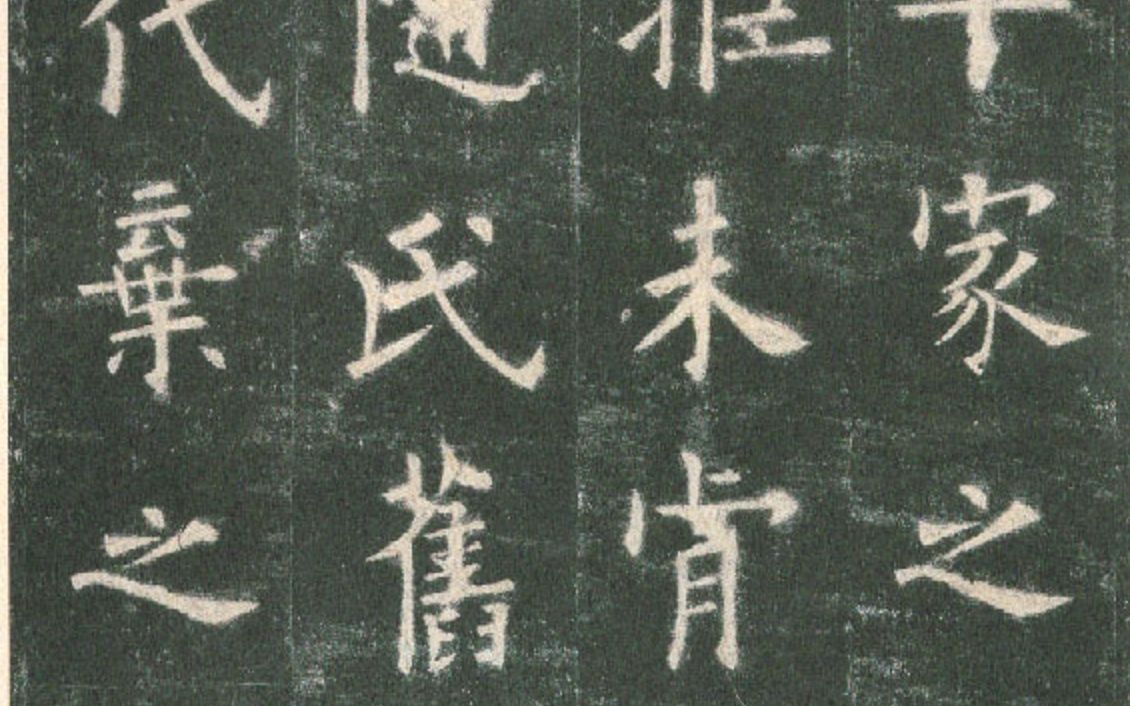 十家之
拒未肯
隨氏舊
代棄之